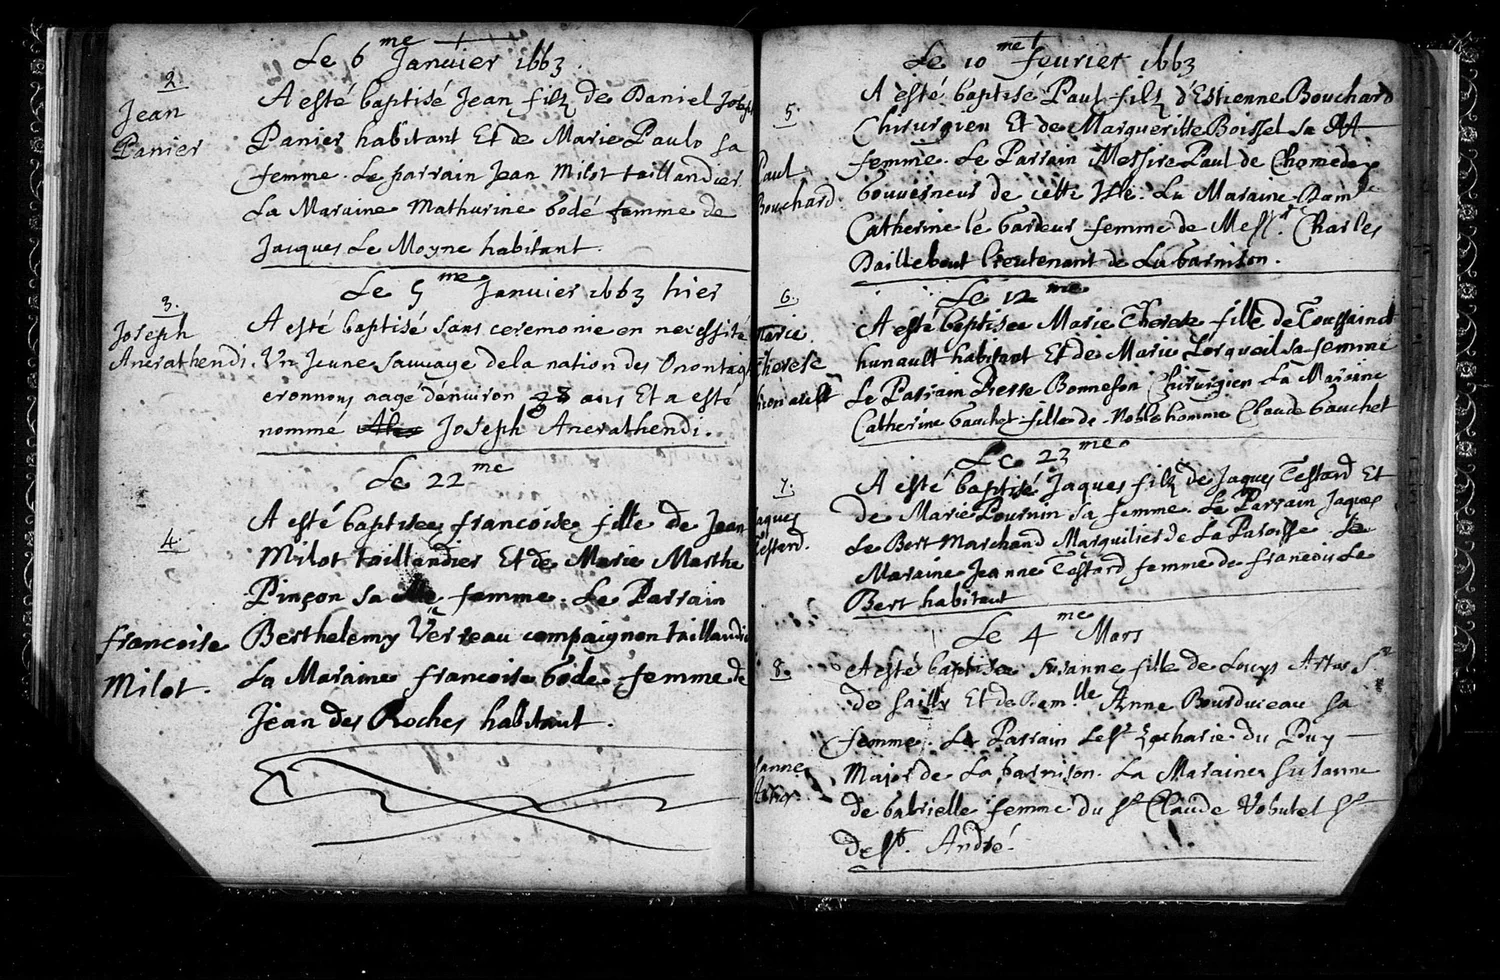 Le 6me Januier 1663.
2
Jean
Panier
A esté baptisé Jean filz de Daniel Joseph
Panier habitant Et de Marie Paulo sa
femme. Le parrain Jean Milot taillandier.
La Maraine Mathurine Godé femme de
Jacques Le Moyne habitant
Le 5me Januier 1663 hier
3.
Joseph
Anerathendi.
A esté baptisé sans ceremonie en necessité
Vn Jeune sauuage de la nation des Onontag
eronnons aagé d'enuiron ans Et a esté
nommé Joseph Anerathendi.
Le 22me
4
francoise
Milot.
A esté baptisee francoise fille de Jean
Milot taillandier Et de Marie Marthe
Pinçon sa femme. Le Parrain
Berthelemy Verreau compaignon taillandi
La Maraine francoise Godé femme de
Jean des Roches habitant.
Le 10me feurier 1663
5.
Paul
Bouchard
A esté baptisé Paul filz d'Estienne Bouchard
Chirurgien Et de Margueritte Boissel sa
femme. Le Parrain Messire Paul de Chomedey
Gouuerneur de cette Isle. La Maraine Dame
Catherine le Gardeur femme de Mess.r Charles
Daillebout lieutenant de La Garnison.
Le 12me
6.
Marie
Therese
hunault
A esté baptisee Marie Therese fille de Toussainct
hunault habitant Et de Marie Lorgueil sa femme
Le Parrain Presse Bonneson Chirurgien La Maraine
Catherine Gauchet fille de Noble homme Claude Gauchet
Le 23me
7.
Jaques
Testard.
A esté baptisé Jaques filz de Jaques Testard Et
de Marie Pournin sa femme. Le Parrain Jaques
Le Bert Marchand Marguilier de La Paroisse La
Maraine Jeanne Testard femme de francois Le
Bert habitant
Le 4me Mars
8.
sanne
Artus
A esté baptisee Susanne fille de Louys Artus S.r
de Sailly Et de Dam.lle Anne Bourduceau sa
femme. Le Parrain Le Sr Zacharie du Puy
Major de La Garnison. La Maraine Susanne
de Gabrielle femme du Sr Claude Robutel Sr
de St. André.